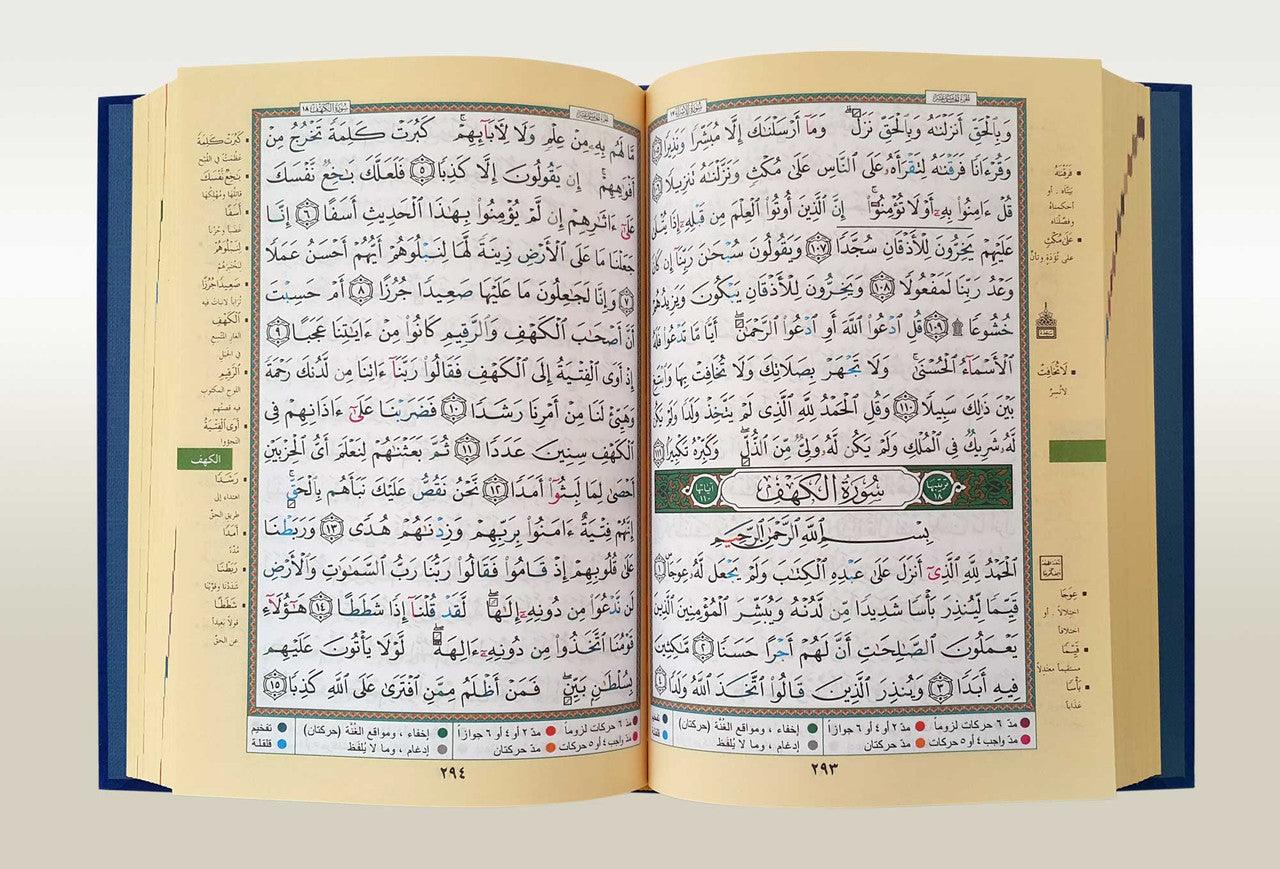 وَبِالْحَقِّ أَنزَلْنَٰهُ وَبِالْحَقِّ نَزَلَ وَمَآ أَرْسَلْنَٰكَ إِلَّا مُبَشِّرًا وَنَذِيرًا
وَقُرْءَانًا فَرَقْنَٰهُ لِتَقْرَأَهُۥ عَلَى النَّاسِ عَلَىٰ مُكْثٍ وَنَزَّلْنَٰهُ تَنزِيلًا
قُلْ ءَامِنُوا۟ بِهِۦٓ أَوْ لَا تُؤْمِنُوٓا۟ إِنَّ الَّذِينَ أُوتُوا۟ الْعِلْمَ مِن قَبْلِهِۦٓ إِذَا يُتْلَىٰ
عَلَيْهِمْ يَخِرُّونَ لِلْأَذْقَانِ سُجَّدًا ١٠٧ وَيَقُولُونَ سُبْحَٰنَ رَبِّنَآ إِن كَانَ
وَعْدُ رَبِّنَا لَمَفْعُولًا ١٠٨ وَيَخِرُّونَ لِلْأَذْقَانِ يَبْكُونَ وَيَزِيدُهُمْ
خُشُوعًا ١٠٩ قُلِ ادْعُوا۟ اللَّهَ أَوِ ادْعُوا۟ الرَّحْمَٰنَ أَيًّا مَّا تَدْعُوا۟ فَلَهُ
الْأَسْمَآءُ الْحُسْنَىٰ وَلَا تَجْهَرْ بِصَلَاتِكَ وَلَا تُخَافِتْ بِهَا وَابْتَغِ
بَيْنَ ذَٰلِكَ سَبِيلًا ١١٠ وَقُلِ الْحَمْدُ لِلَّهِ الَّذِى لَمْ يَتَّخِذْ وَلَدًا وَلَمْ يَكُن
لَّهُۥ شَرِيكٌ فِى الْمُلْكِ وَلَمْ يَكُن لَّهُۥ وَلِىٌّ مِّنَ الذُّلِّ وَكَبِّرْهُ تَكْبِيرًا ١١١
ترتيبها ١٨ سُورَةُ الْكَهْفِ آياتها ١١٠
بِسْمِ اللَّهِ الرَّحْمَٰنِ الرَّحِيمِ
الْحَمْدُ لِلَّهِ الَّذِىٓ أَنزَلَ عَلَىٰ عَبْدِهِ الْكِتَٰبَ وَلَمْ يَجْعَل لَّهُۥ عِوَجَا ١
قَيِّمًا لِّيُنذِرَ بَأْسًا شَدِيدًا مِّن لَّدُنْهُ وَيُبَشِّرَ الْمُؤْمِنِينَ الَّذِينَ
يَعْمَلُونَ الصَّٰلِحَٰتِ أَنَّ لَهُمْ أَجْرًا حَسَنًا ٢ مَّٰكِثِينَ
فِيهِ أَبَدًا ٣ وَيُنذِرَ الَّذِينَ قَالُوا۟ اتَّخَذَ اللَّهُ وَلَدًا ٤
فَرَقْنَٰهُ
بيّنّاه . أو
أحكمناه
وفصّلناه
عَلَىٰ مُكْثٍ
على تُؤَدَةٍ وتأنٍّ
لَا تُخَافِتْ
لا تُسِرَّ
عِوَجَا
اختلالاً . أو
اختلافاً
قَيِّمًا
مستقيماً معتدلاً
بَأْسًا
عَذاباً
مدّ ٦ حركات لزوماً مدّ ٢ أو ٤ أو ٦ جوازاً إخفاء ، ومواقع الغُنَّة (حركتان)
مدّ واجب ٤ أو ٥ حركات مدّ حركتان إدغام ، وما لا يُلفَظ
٢٩٣
سُورَةُ الْكَهْفِ ١٨
مَّا لَهُم بِهِۦ مِنْ عِلْمٍ وَلَا لِءَابَآئِهِمْ كَبُرَتْ كَلِمَةً تَخْرُجُ مِنْ
أَفْوَٰهِهِمْ إِن يَقُولُونَ إِلَّا كَذِبًا ٥ فَلَعَلَّكَ بَٰخِعٌ نَّفْسَكَ
عَلَىٰٓ ءَاثَٰرِهِمْ إِن لَّمْ يُؤْمِنُوا۟ بِهَٰذَا الْحَدِيثِ أَسَفًا ٦ إِنَّا
جَعَلْنَا مَا عَلَى الْأَرْضِ زِينَةً لَّهَا لِنَبْلُوَهُمْ أَيُّهُمْ أَحْسَنُ عَمَلًا
٧ وَإِنَّا لَجَٰعِلُونَ مَا عَلَيْهَا صَعِيدًا جُرُزًا ٨ أَمْ حَسِبْتَ
أَنَّ أَصْحَٰبَ الْكَهْفِ وَالرَّقِيمِ كَانُوا۟ مِنْ ءَايَٰتِنَا عَجَبًا ٩
إِذْ أَوَى الْفِتْيَةُ إِلَى الْكَهْفِ فَقَالُوا۟ رَبَّنَآ ءَاتِنَا مِن لَّدُنكَ رَحْمَةً
وَهَيِّئْ لَنَا مِنْ أَمْرِنَا رَشَدًا ١٠ فَضَرَبْنَا عَلَىٰٓ ءَاذَانِهِمْ فِى
الْكَهْفِ سِنِينَ عَدَدًا ١١ ثُمَّ بَعَثْنَٰهُمْ لِنَعْلَمَ أَىُّ الْحِزْبَيْنِ
أَحْصَىٰ لِمَا لَبِثُوٓا۟ أَمَدًا ١٢ نَّحْنُ نَقُصُّ عَلَيْكَ نَبَأَهُم بِالْحَقِّ
إِنَّهُمْ فِتْيَةٌ ءَامَنُوا۟ بِرَبِّهِمْ وَزِدْنَٰهُمْ هُدًى ١٣ وَرَبَطْنَا
عَلَىٰ قُلُوبِهِمْ إِذْ قَامُوا۟ فَقَالُوا۟ رَبُّنَا رَبُّ السَّمَٰوَٰتِ وَالْأَرْضِ
لَن نَّدْعُوَا۟ مِن دُونِهِۦٓ إِلَٰهًا لَّقَدْ قُلْنَآ إِذًا شَطَطًا ١٤ هَٰٓؤُلَآءِ
قَوْمُنَا اتَّخَذُوا۟ مِن دُونِهِۦٓ ءَالِهَةً لَّوْلَا يَأْتُونَ عَلَيْهِم
بِسُلْطَٰنٍ بَيِّنٍ فَمَنْ أَظْلَمُ مِمَّنِ افْتَرَىٰ عَلَى اللَّهِ كَذِبًا ١٥
كَبُرَتْ كَلِمَةً
عَظُمَتْ في القُبْح
بَٰخِعٌ نَّفْسَكَ
قاتِلُها ومُهْلِكُها
أَسَفًا
غَضَباً وحُزْناً
لِنَبْلُوَهُمْ
لِنَخْتَبِرَهُمْ
صَعِيدًا جُرُزًا
تُراباً لا نباتَ فيه
الْكَهْفِ
الغار المُتَّسِع
في الجبل
الرَّقِيمِ
اللوح المكتوب
فيه قصتهم
أَوَى الْفِتْيَةُ
التجؤوا
رَشَدًا
اهتداء إلى
طريق الحقّ
أَمَدًا
مُدّة
رَبَطْنَا
شَدَدْنا وقوّيْنا
شَطَطًا
قولاً بعيداً
عن الحقّ
الكهف
مدّ ٦ حركات لزوماً مدّ ٢ أو ٤ أو ٦ جوازاً إخفاء ، ومواقع الغُنَّة (حركتان) تفخيم
مدّ واجب ٤ أو ٥ حركات مدّ حركتان إدغام ، وما لا يُلفَظ قلقلة
٢٩٤